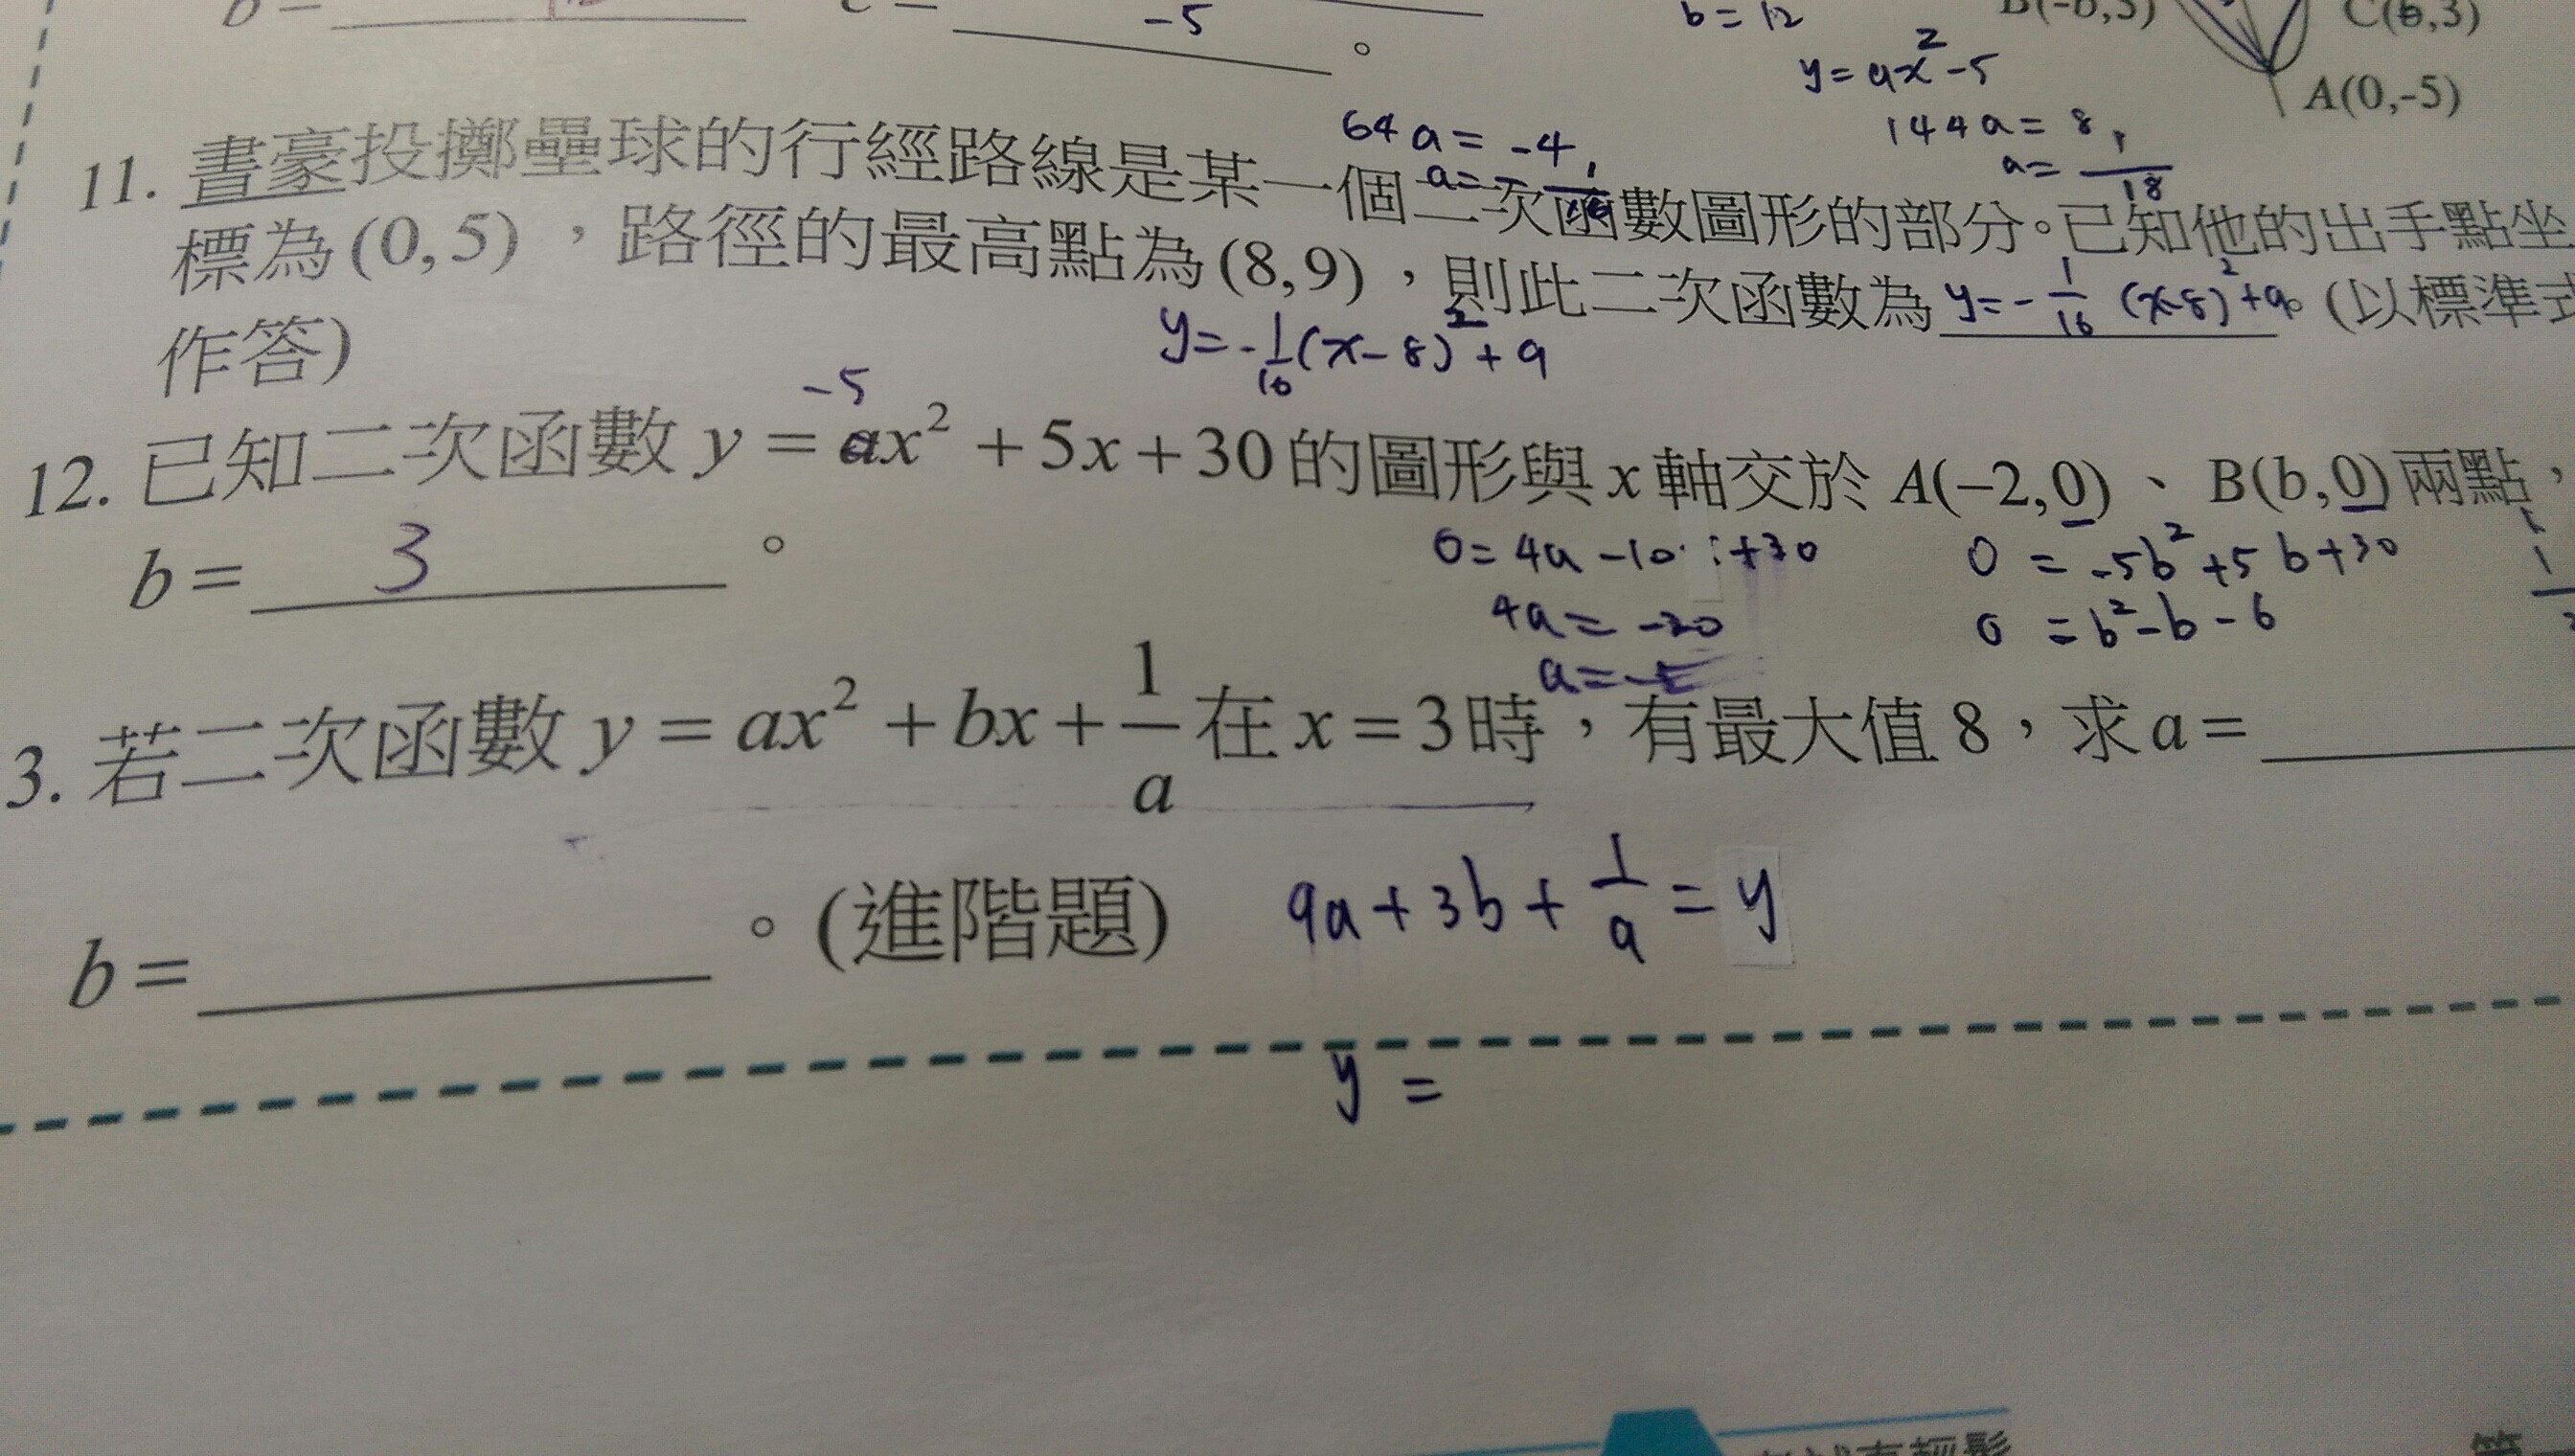 b = c = -5 。
b = 12
B(-b,3) C(b,3)
y = ax² - 5
A(0,-5)
144a = 8
a = 1/18
64a = -4
a = - 1/16
11. 書豪投擲壘球的行經路線是某一個二次函數圖形的部分。已知他的出手點坐
標為(0,5)，路徑的最高點為(8,9)，則此二次函數為 y = - 1/16 (x-8)² + 9。(以標準式
作答)
y = - 1/16 (x-8)² + 9
-5
12. 已知二次函數 y = ax² + 5x + 30 的圖形與 x 軸交於 A(-2,0)、B(b,0) 兩點，
b = 3 。
0 = 4a - 10 + 30
4a = -20
a = -5
0 = -5b² + 5b + 30
0 = b² - b - 6
3. 若二次函數 y = ax² + bx + 1/a 在 x = 3 時，有最大值 8，求 a =
b = 。(進階題)
9a + 3b + 1/a = y
y =